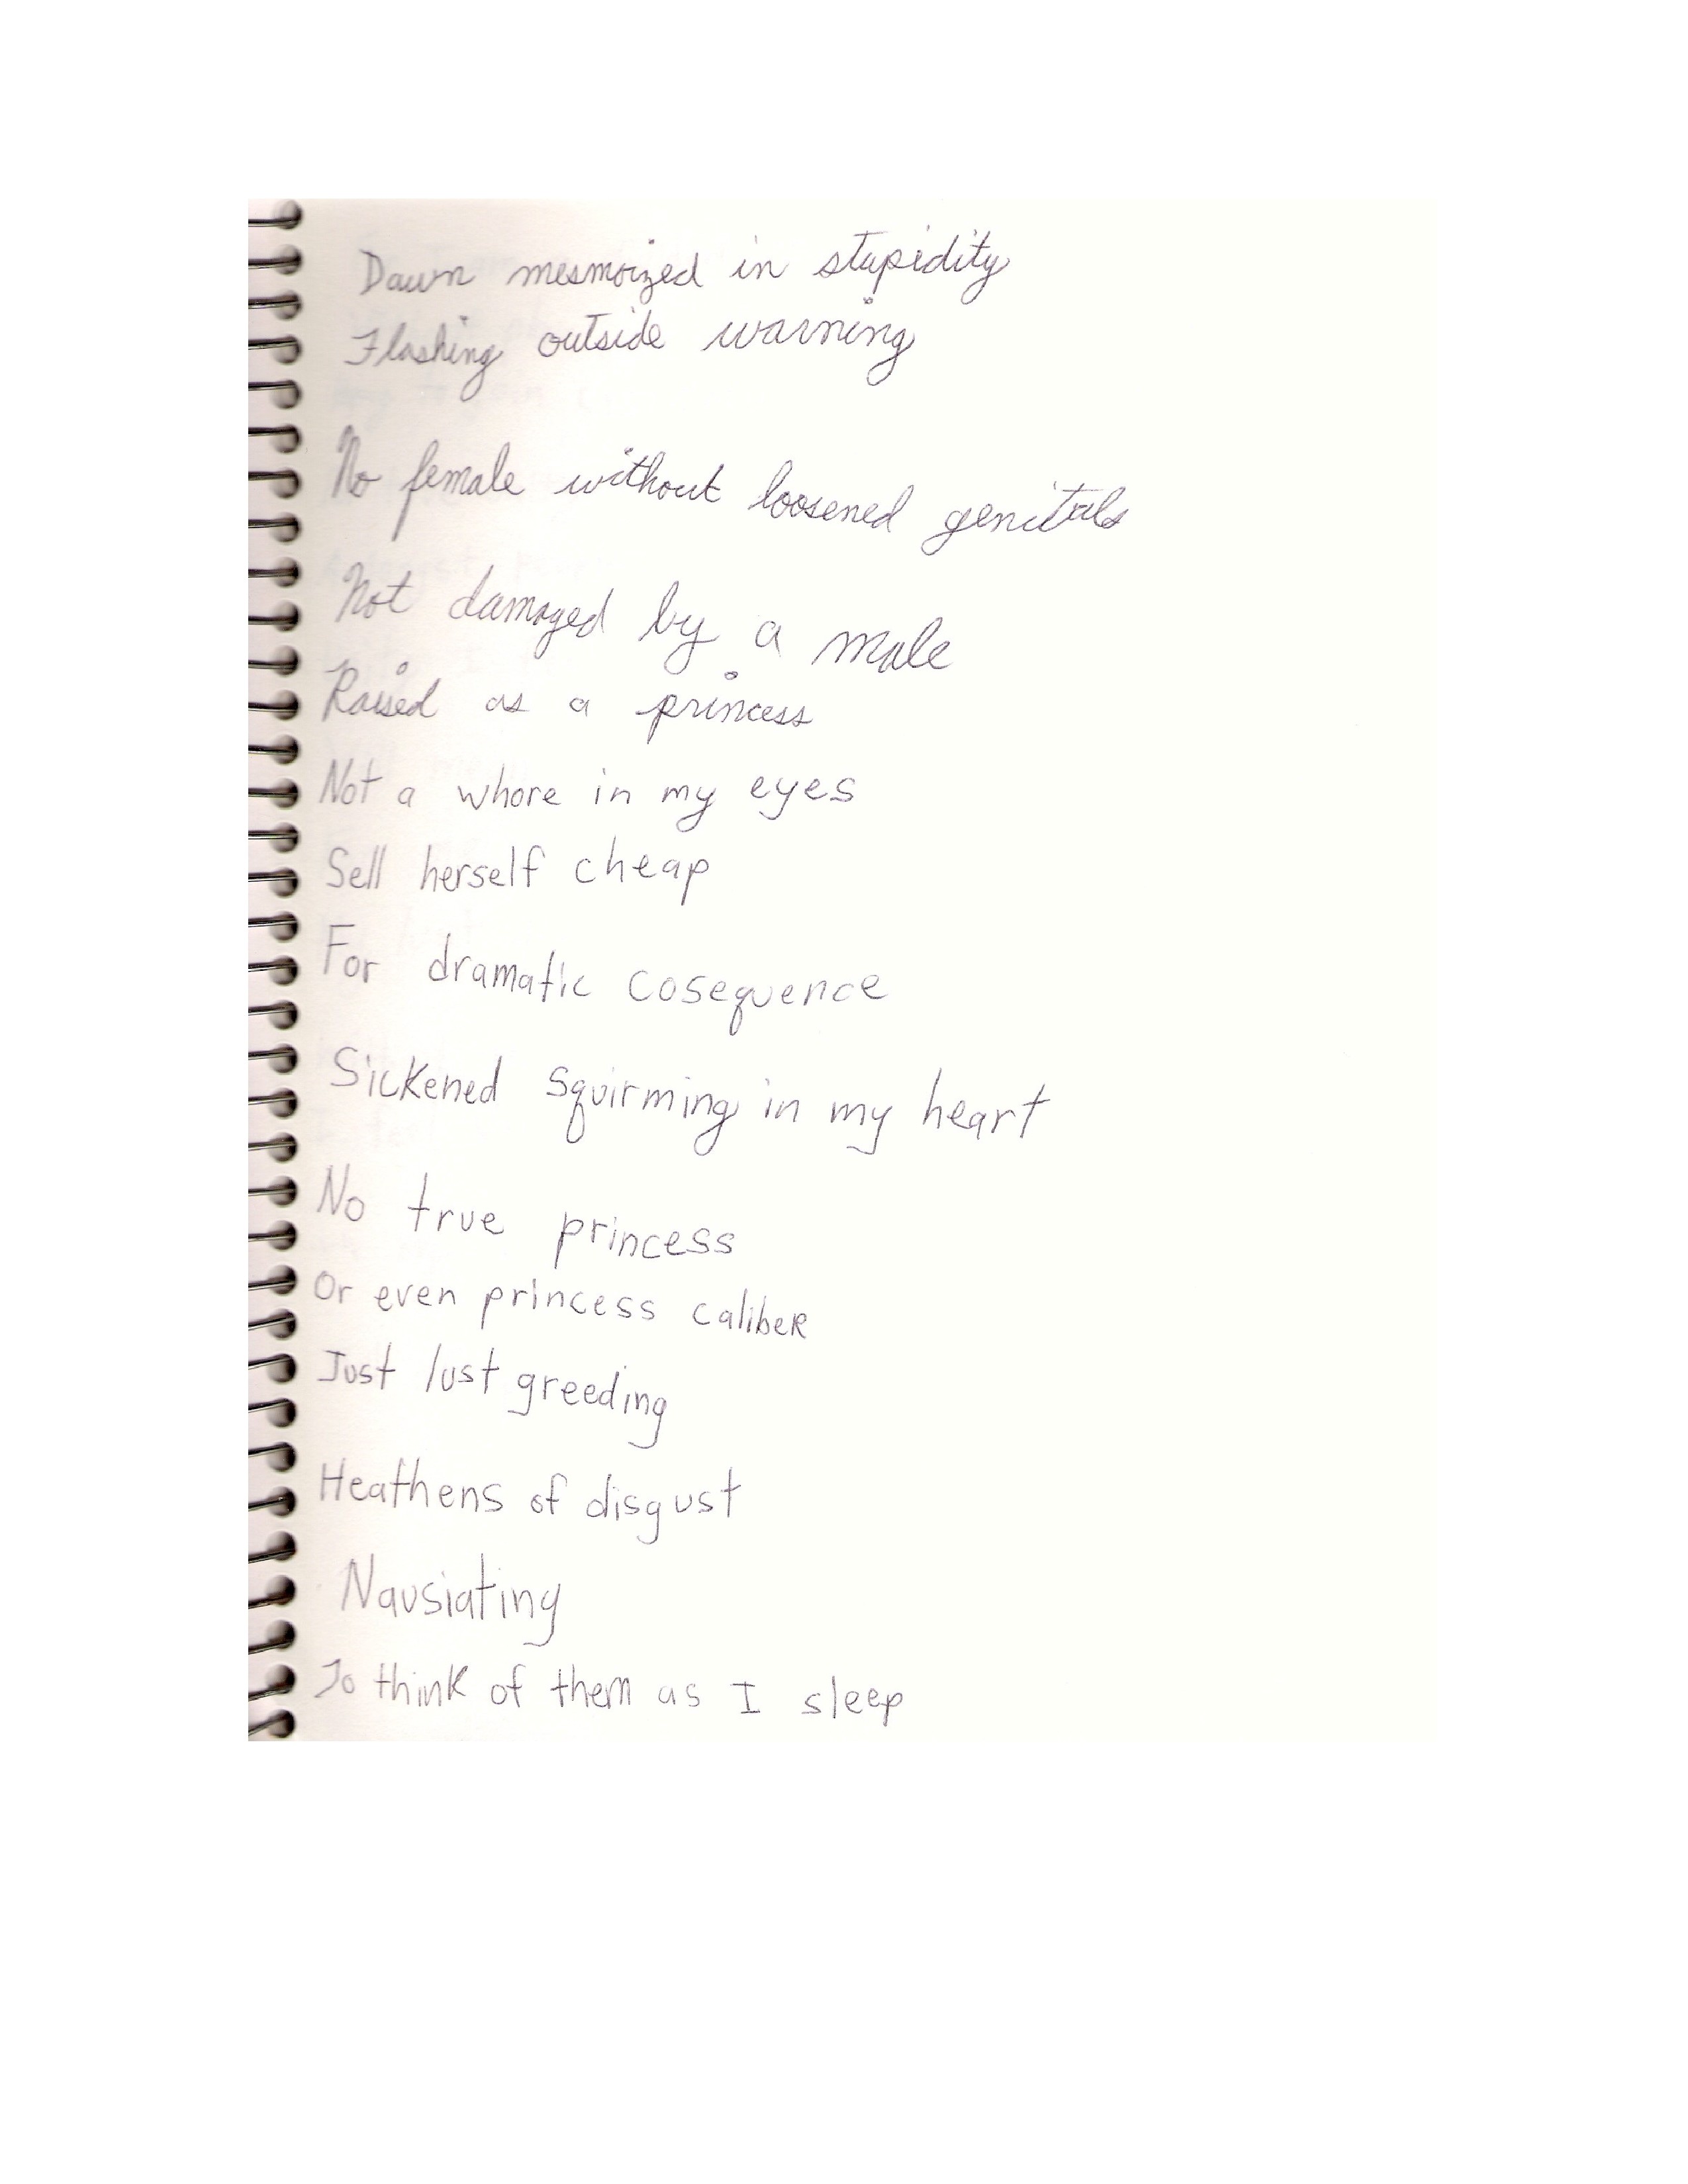 Dawn mesmoized in stupidity
Flashing outside warning
No female without loosened genitals
Not damaged by a male
Raised as a princess
Not a whore in my eyes
Sell herself cheap
For dramatic cosequence
Sickened squirming in my heart
No true princess
Or even princess caliber
Just lust greeding
Heathens of disgust
Nausiating
To think of them as I sleep